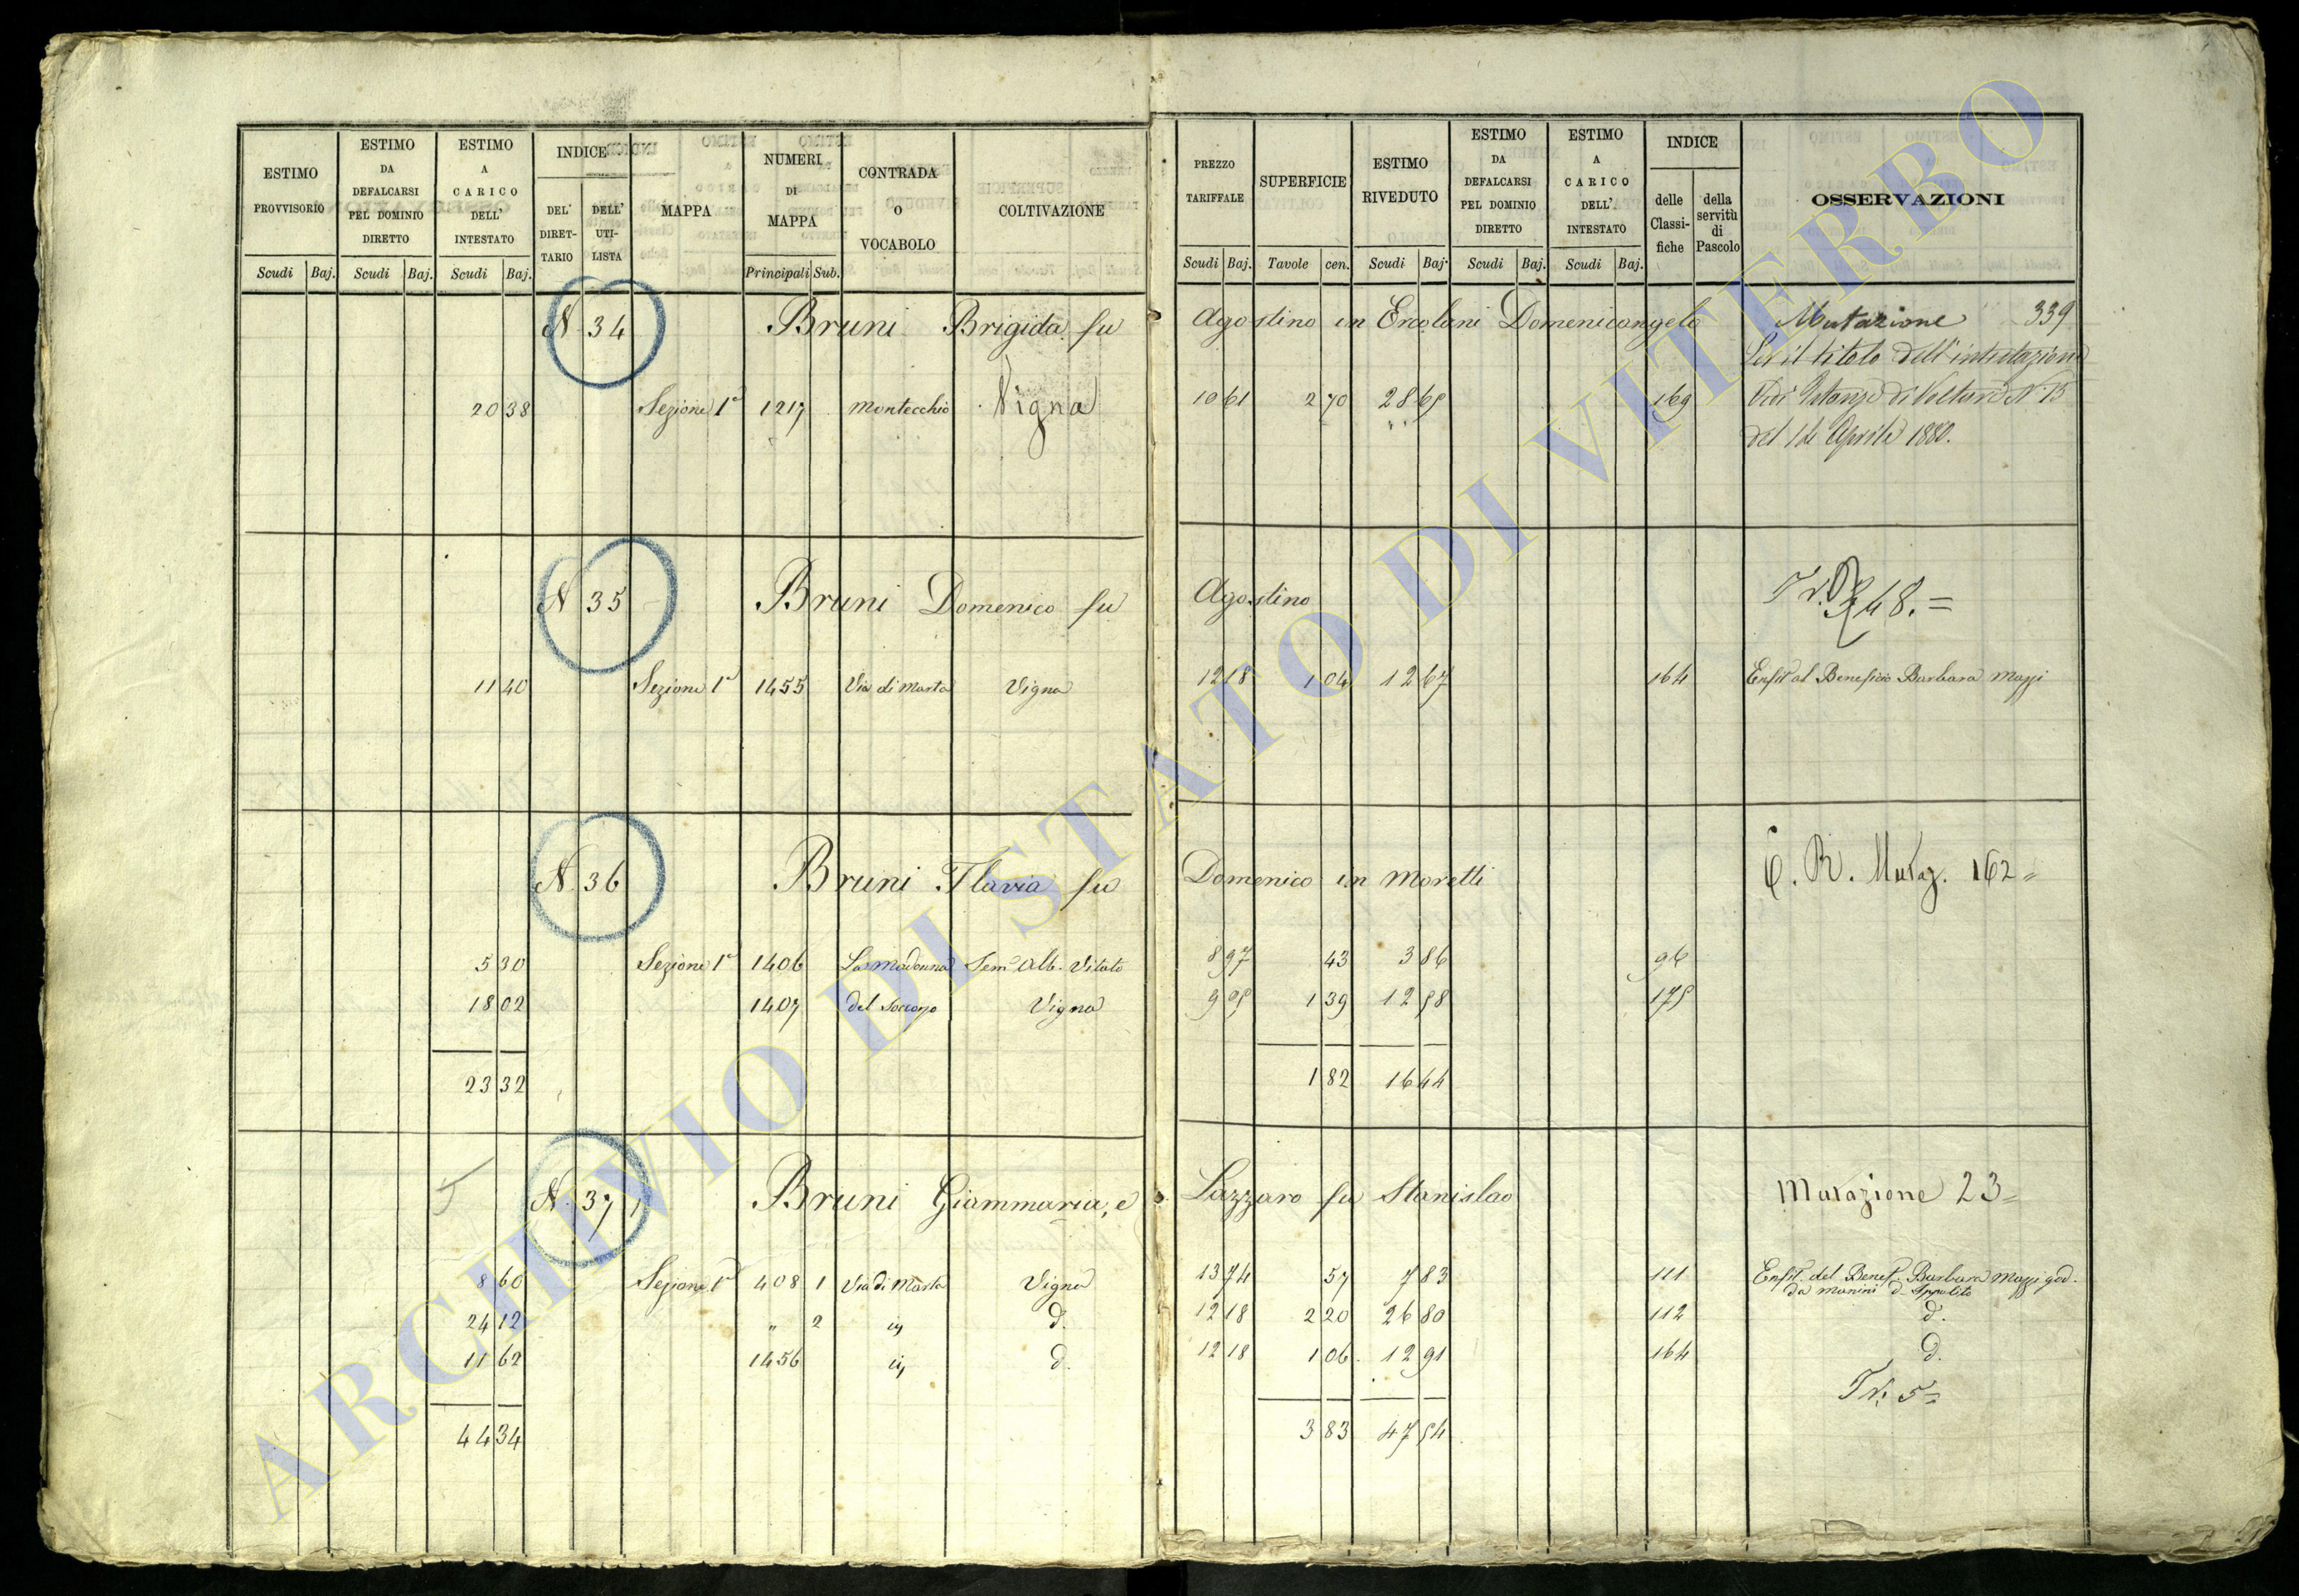 ESTIMO PROVVISORIO
Scudi Baj.
ESTIMO DA DEFALCARSI PEL DOMINIO DIRETTO
Scudi Baj.
ESTIMO A CARICO DELL' INTESTATO
Scudi Baj.
INDICE
DEL DIRET- TARIO
DELL' UTI- LISTA
MAPPA
NUMERI DI MAPPA
Principali Sub.
CONTRADA O VOCABOLO
COLTIVAZIONE
PREZZO TARIFFALE
Scudi Baj.
SUPERFICIE
Tavole cen.
ESTIMO RIVEDUTO
Scudi Baj.
ESTIMO DA DEFALCARSI PEL DOMINIO DIRETTO
Scudi Baj.
ESTIMO A CARICO DELL' INTESTATO
Scudi Baj.
INDICE
delle Classi- fiche
della servitù di Pascolo
OSSERVAZIONI
N. 34 Bruni Brigida fu Agostino in Ercolani Domenicangelo Mutazione 339
dell'intestazione
20 38 Sezione 1ª 1217 Montecchio Vigna 10 61 2 70 28 65 169 N. 15
Aprile 1880.
N. 35 Bruni Domenico fu Agostino 248.=
11 40 Sezione 1ª 1455 Via di Marta Vigna 12 18 1 04 12 67 164 Enfit. al Beneficio Barbara Mazzi
N. 36 Bruni Flavia fu Domenico in Moretti C. R. Mutaz. 162=
5 30 Sezione 1ª 1406 La Madonna Semº Alb. Vitato 8 97 43 3 86 96
18 02 1407 del Soccorso Vigna 9 05 1 39 12 58 175
23 32 1 82 16 44
N. 37 Bruni Giammaria, e Lazzaro fu Stanislao Mutazione 23=
8 60 Sezione 1ª 408 1 Via di Marta Vigna 13 74 57 7 83 111 Enfit. del Benef. Barbara Mazzi god.
da Manini d. Ippolito
24 12 " 2 d. 12 18 2 20 26 80 112 d.
11 62 1456 d. 12 18 1 06 12 91 164 d.
5=
44 34 3 83 47 54
ARCHIVIO DI STATO DI VITERBO